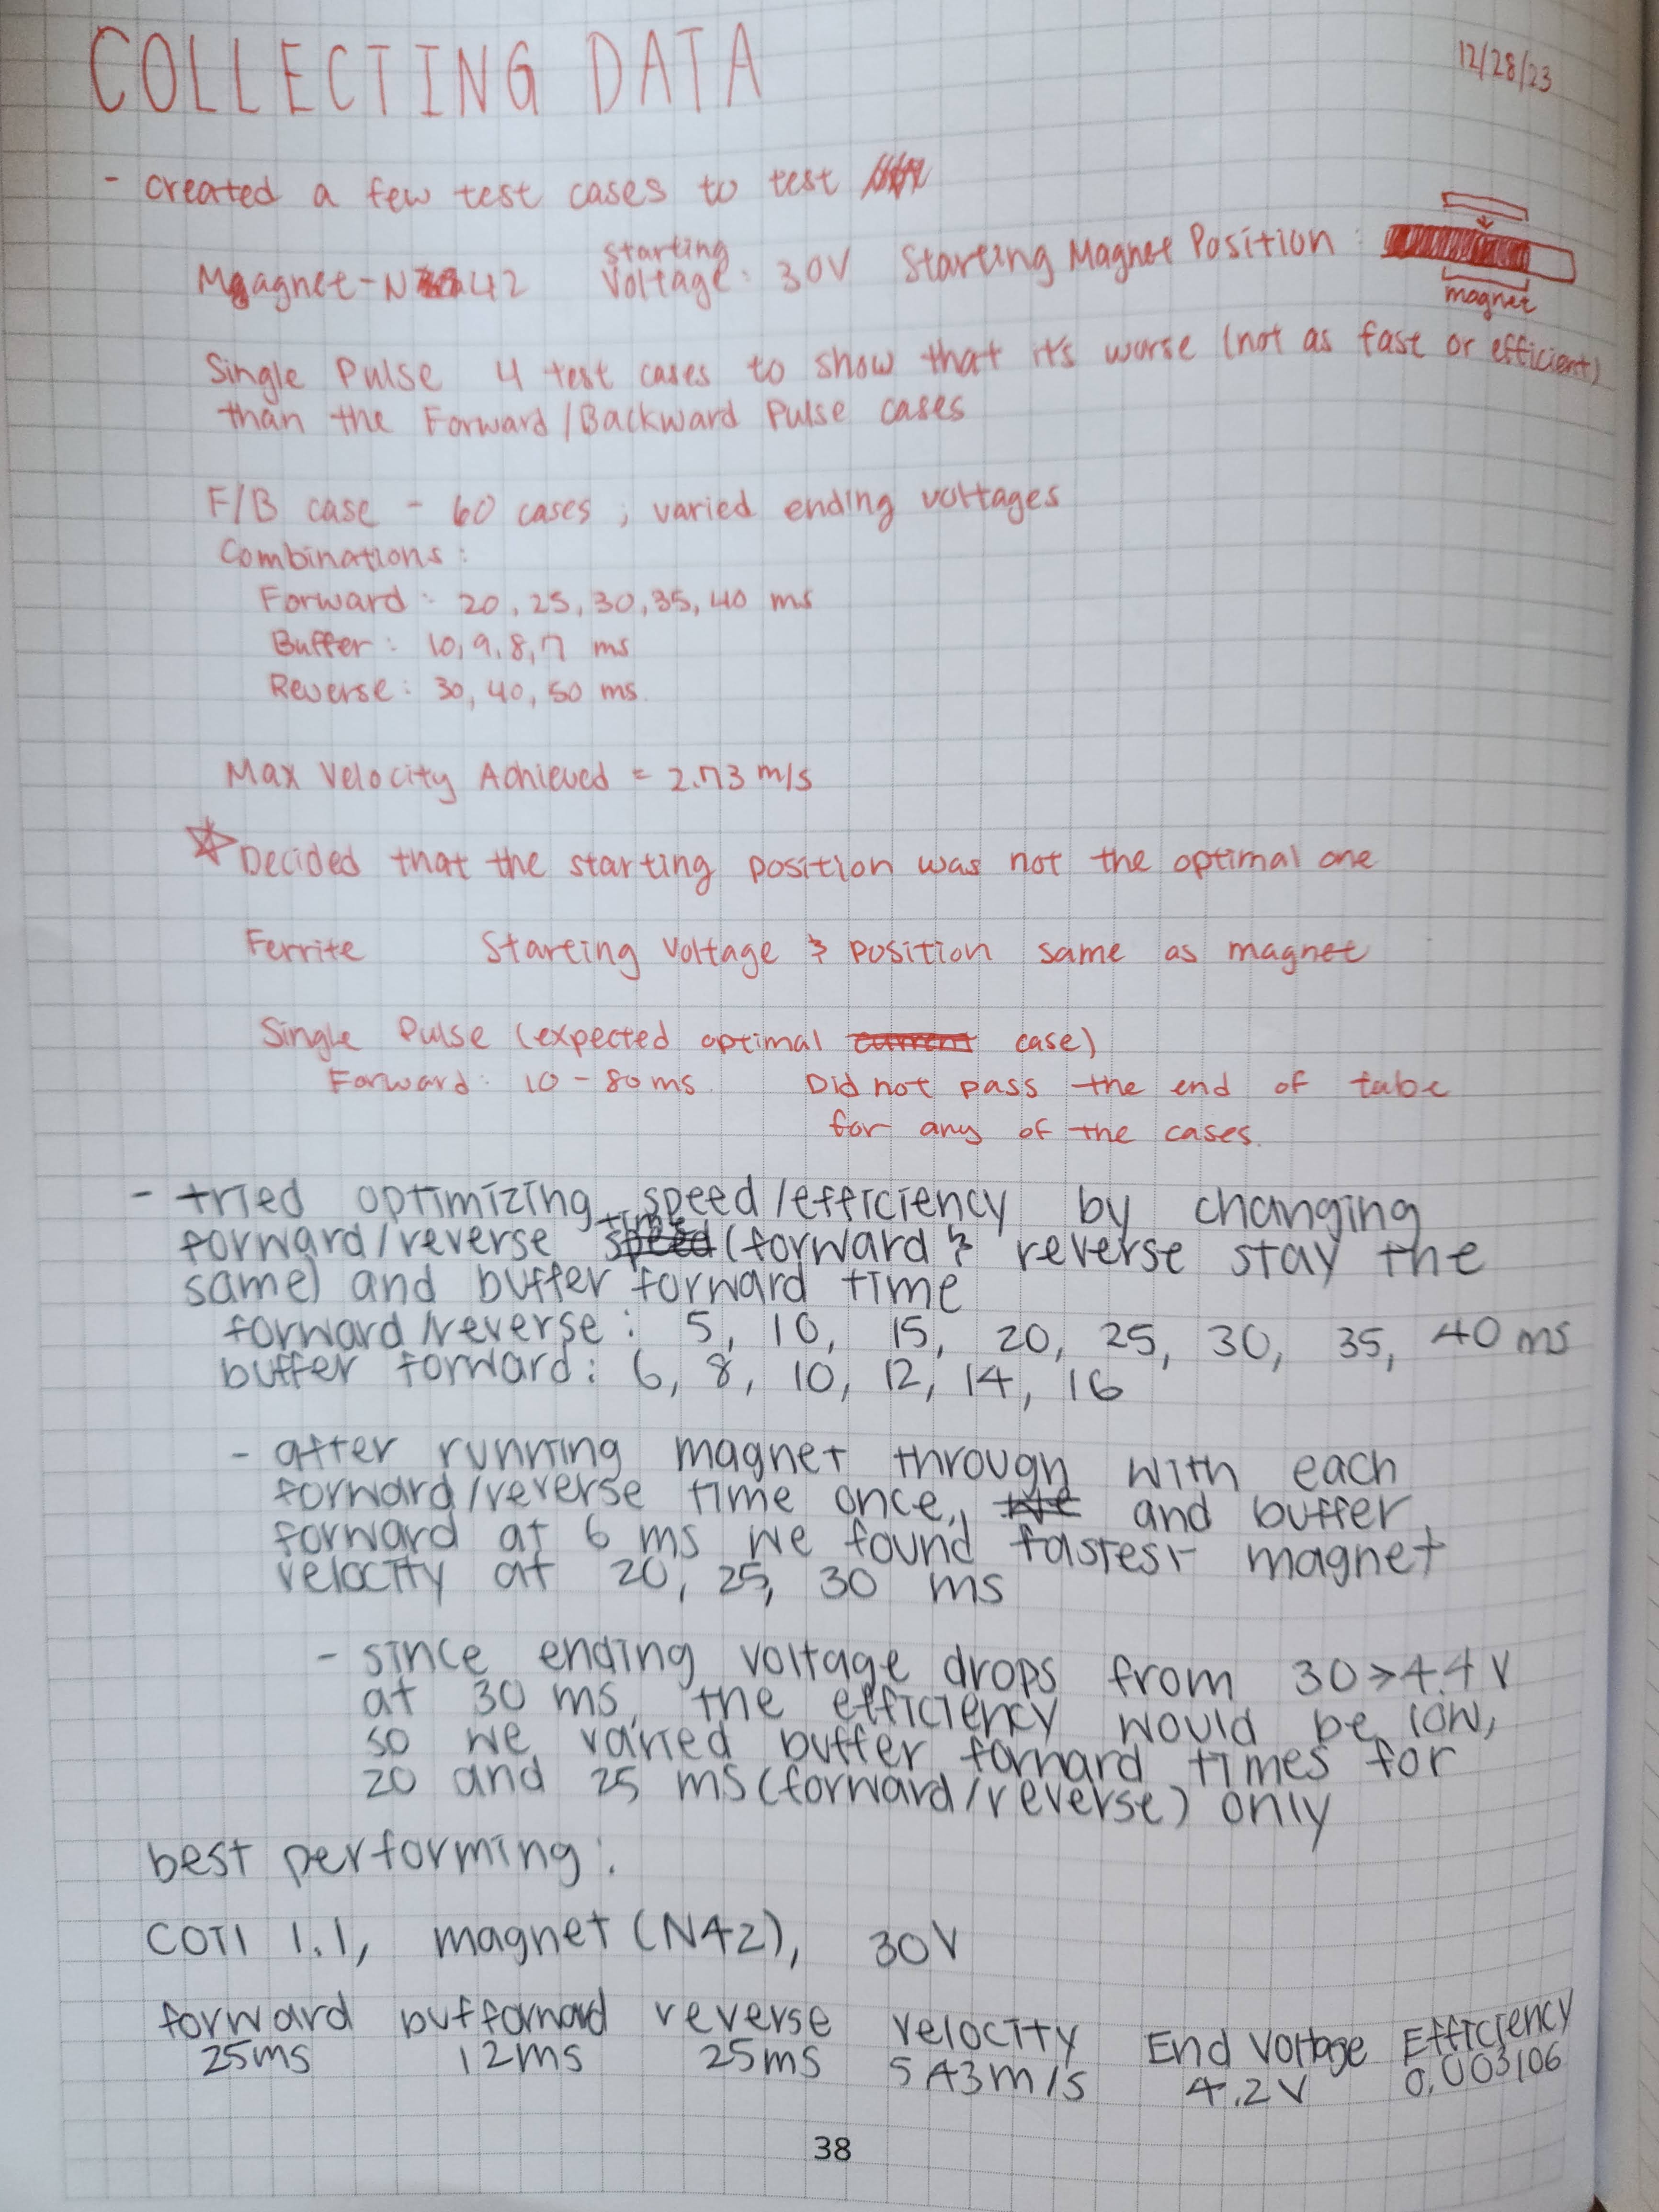 COLLECTING DATA
12/28/23
- created a few test cases to test
Magnet-N42 starting Voltage: 30V Starting Magnet Position:
magnet
Single Pulse 4 test cases to show that it's worse (not as fast or efficient)
than the Forward/Backward Pulse cases
F/B case - 60 cases ; varied ending voltages
Combinations:
Forward: 20, 25, 30, 35, 40 ms
Buffer: 10, 9, 8, 7 ms
Reverse: 30, 40, 50 ms.
Max Velocity Achieved = 2.73 m/s
☆ Decided that the starting position was not the optimal one
Ferrite Starting Voltage & position same as magnet
Single Pulse (expected optimal current case)
Forward: 10 - 80 ms. Did not pass the end of tube
for any of the cases.
- tried optimizing speed/efficiency by changing
forward/reverse speed time (forward & reverse stay the
same) and buffer forward time
forward/reverse: 5, 10, 15, 20, 25, 30, 35, 40 ms
buffer forward: 6, 8, 10, 12, 14, 16
- after running magnet through with each
forward/reverse time once, we and buffer
forward at 6 ms we found fastest magnet
velocity at 20, 25, 30 ms
- since ending voltage drops from 30>4.4 V
at 30 ms, the efficiency would be low,
so we varied buffer forward times for
20 and 25 ms (forward/reverse) only
best performing:
COTI 1.1, magnet (N42), 30V
forward bufforward reverse velocity End Voltage Efficiency
25ms 12ms 25ms 5.43m/s 4.2V 0.003106
38